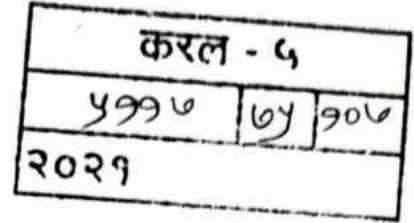 करल - ५
५११७ ७५ १०७
२०२१